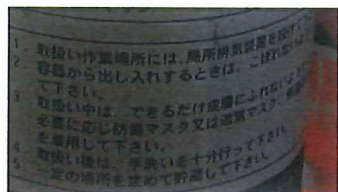 1 取扱い作業場所には、局所排気装置を設け
2 容器から出し入れするときは、こぼれないよ
て下さい。
3 取扱い中は、できるだけ皮膚にふれないよ
必要に応じ防毒マスク又は送気マスク、
を着用して下さい。
4 取扱い後は、手洗いを十分行って下さい。
5 一定の場所を定めて貯蔵して下さい。